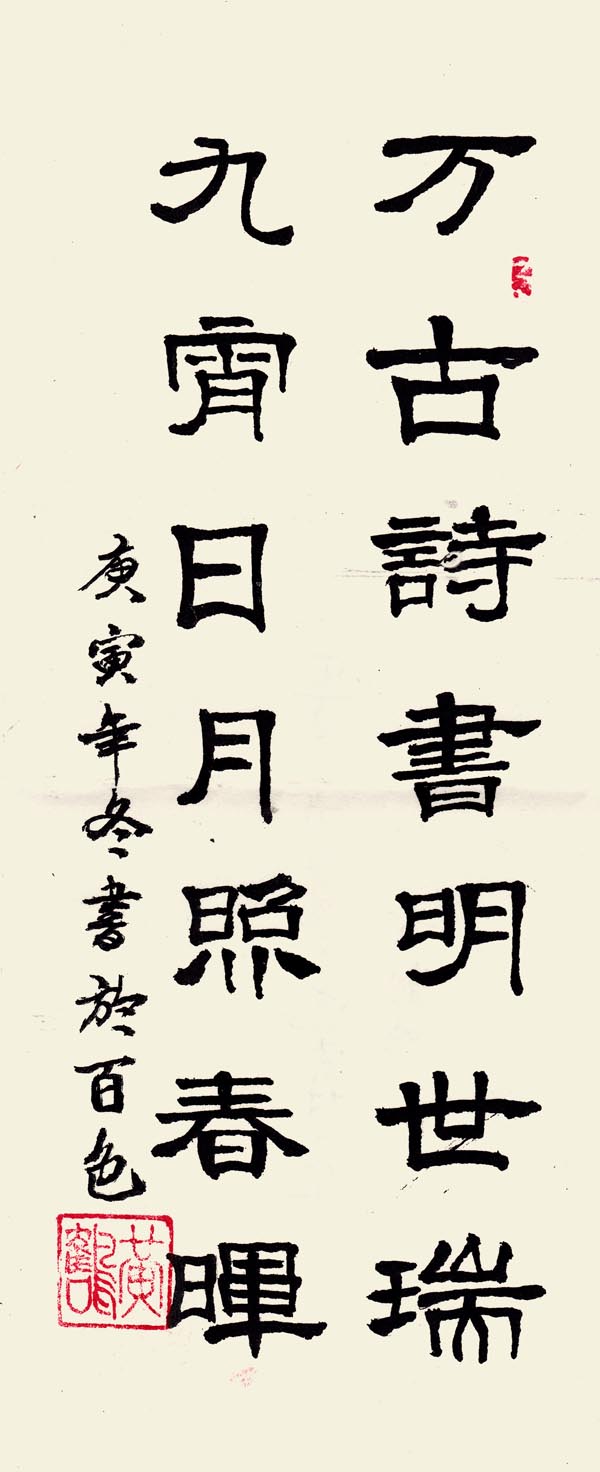 万古詩書明世瑞
九霄日月照春暉
庚寅年冬書於百色